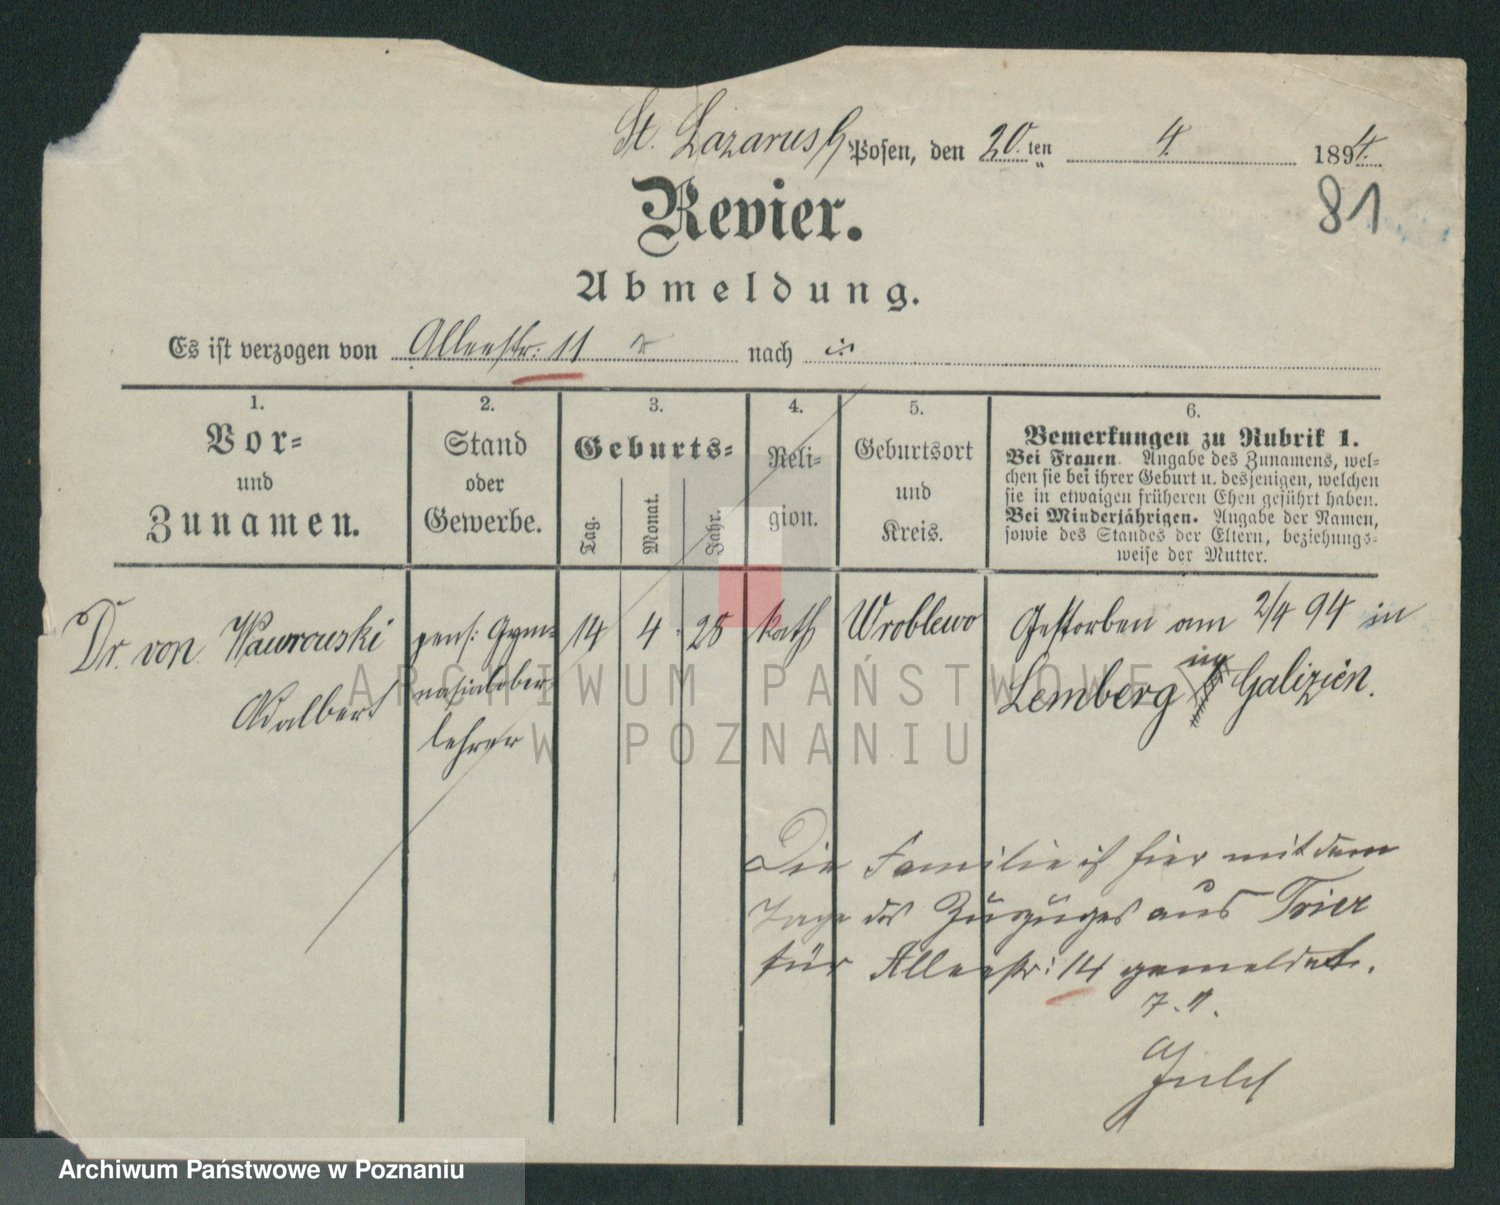 St. Lazarus b/ Posen, den 20.ten 4. 1894.
81
Revier.
Abmeldung.
Es ist verzogen von Alleestr: 11 nach
1. Vor- und Zunamen.
2. Stand oder Gewerbe.
3. Geburts- Tag. Monat. Jahr.
4. Religion.
5. Geburtsort und Kreis.
6. Bemerkungen zu Rubrik 1.
Bei Frauen. Angabe des Zunamens, wel-
chen sie bei ihrer Geburt u. desjenigen, welchen
sie in etwaigen früheren Ehen geführt haben.
Bei Minderjährigen. Angabe der Namen,
sowie des Standes der Eltern, beziehungs-
weise der Mutter.
Dr. von Wawrowski
Adalbert
pens: Gym-
nasialober-
lehrer
14 4 28 kath Wroblewo
Gestorben am 2/4 94 in
Lemberg in Galizien.
ARCHIWUM PAŃSTWOWE
W POZNANIU
Die Familie ist hier mit dem
Tage des Zuzuges aus Trier
für Alleestr: 14 gemeldet.
Archiwum Państwowe w Poznaniu